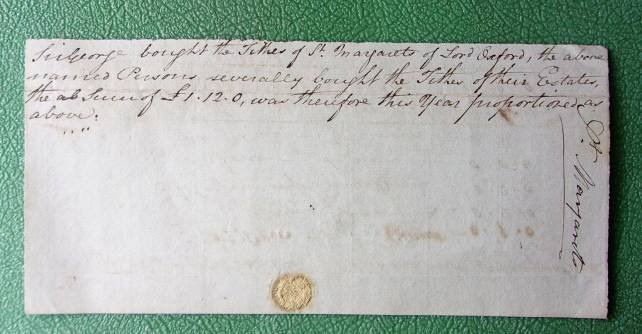 Sir George bought the Tithes of St. Margarets of Lord Oxford, the above
named Persons severally bought the Tithes of their Estates,
the ab Sum of £1.12.0, was therefore this Year proportioned as
above.
St. Margarets